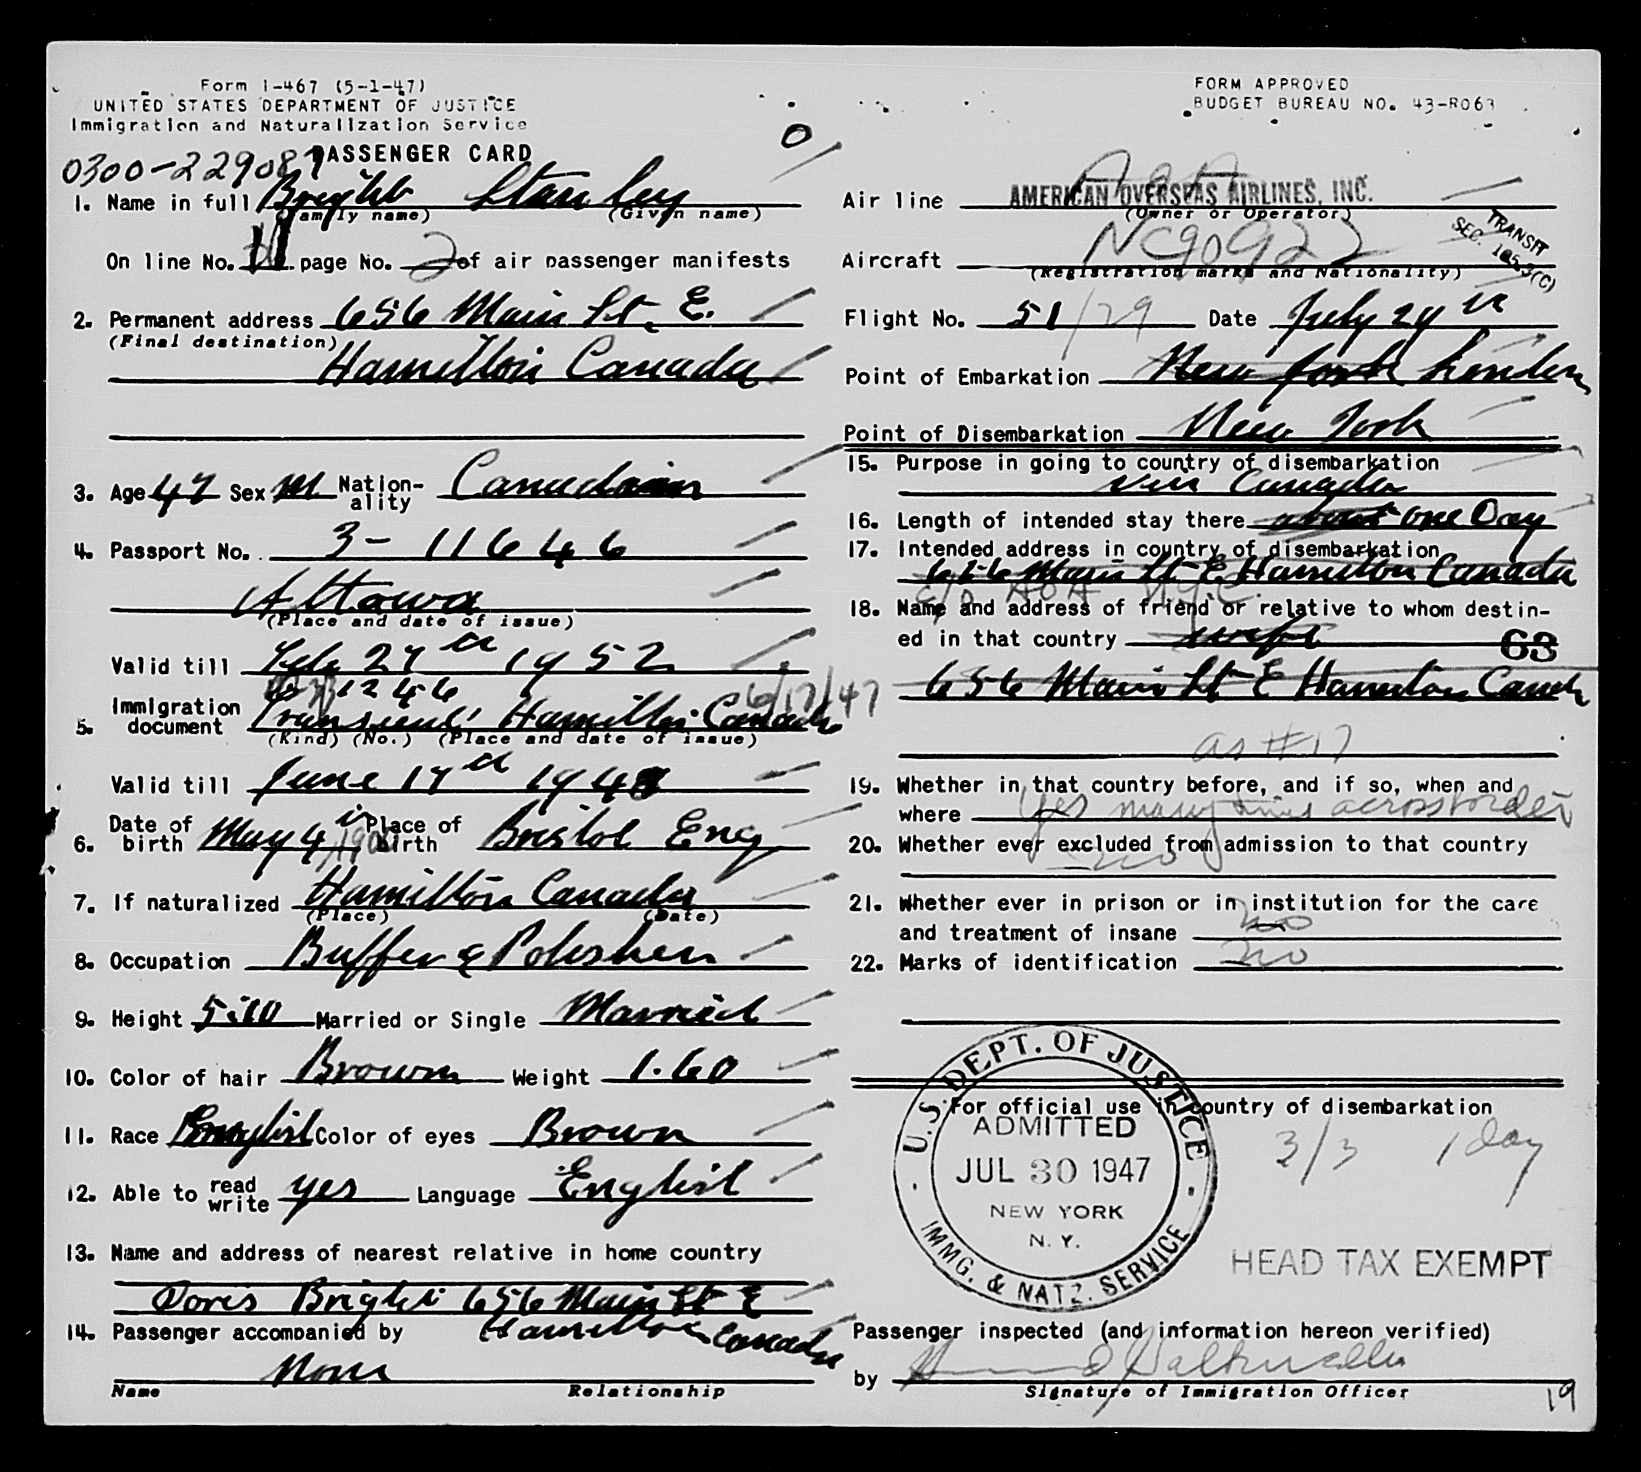 Form I-467 (5-1-47)
UNITED STATES DEPARTMENT OF JUSTICE
Immigration and Naturalization Service
FORM APPROVED
BUDGET BUREAU NO. 43-R063
0300-229087 PASSENGER CARD
O
1. Name in full Bright Stanley
(Family name) (Given name)
On line No. 11 page No. 2 of air passenger manifests
2. Permanent address 656 Main St. E.
(Final destination)
Hamilton Canada
3. Age 47 Sex M. Nationality Canadian
4. Passport No. 3-11646
Ottawa
(Place and date of issue)
Valid till Feb 27th 1952
1246 6/17/47
5. Immigration document Transient Hamilton Canada
(Kind) (No.) (Place and date of issue)
Valid till June 17th 1948
6. Date of birth May 4th 1900 Place of birth Bristol Eng
7. If naturalized Hamilton Canada
(Place) (Date)
8. Occupation Buffer & Polisher
9. Height 5.10 Married or Single Married
10. Color of hair Brown Weight 1.60
11. Race English Color of eyes Brown
12. Able to read write yes Language English
13. Name and address of nearest relative in home country
Doris Bright 656 Main St E
Hamilton Canada
14. Passenger accompanied by
None
Name Relationship
AOA
Air line AMERICAN OVERSEAS AIRLINES, INC.
(Owner or Operator)
TRANSIT
SEC. 105.3(C)
Aircraft NC90922
(Registration marks and Nationality)
Flight No. 51/29 Date July 29th
Point of Embarkation New York London
Point of Disembarkation New York
15. Purpose in going to country of disembarkation
via Canada
16. Length of intended stay there about one Day
17. Intended address in country of disembarkation
656 Main St E Hamilton Canada
c/o AOA NYC.
18. Name and address of friend or relative to whom destined in that country wife
63
656 Main St E Hamilton Canada
as #17
19. Whether in that country before, and if so, when and
where Yes many times across border
20. Whether ever excluded from admission to that country
no
21. Whether ever in prison or in institution for the care
and treatment of insane no
22. Marks of identification no
For official use in country of disembarkation
U.S. DEPT. OF JUSTICE
ADMITTED
JUL 30 1947
NEW YORK
N. Y.
IMMG. & NATZ. SERVICE
3/3 1 day
HEAD TAX EXEMPT
Passenger inspected (and information hereon verified)
by
Signature of Immigration Officer
19